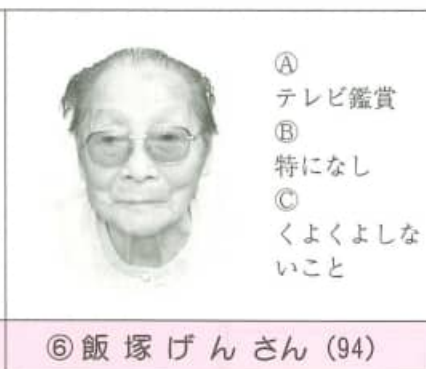 Ⓐ
テレビ鑑賞
Ⓑ
特になし
Ⓒ
くよくよしな
いこと
⑥飯塚げんさん（94）